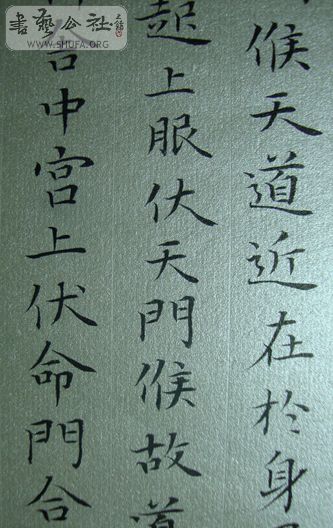 候天道近在於身
起上服伏天門候故道
合中宮上伏命門合
書藝公社
WWW.SHUFA.ORG